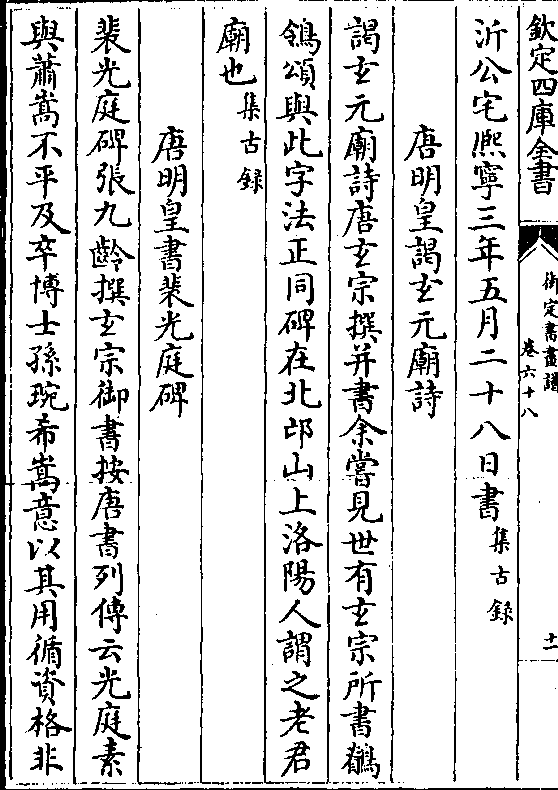 欽定四庫全書
御定書畫譜
卷六十八
十一
沂公宅熈寧三年五月二十八日書集古録
唐明皇謁𤣥元廟詩
謁𤣥元廟詩唐𤣥宗撰并書余嘗見世有𤣥宗所書鶺
鴒頌與此字法正同碑在北邙山上洛陽人謂之老君
廟也集古録
唐明皇書裴光庭碑
裴光庭碑張九齡撰𤣥宗御書按唐書列傳云光庭素
與蕭嵩不平及卒博士孫琬希嵩意以其用循資格非